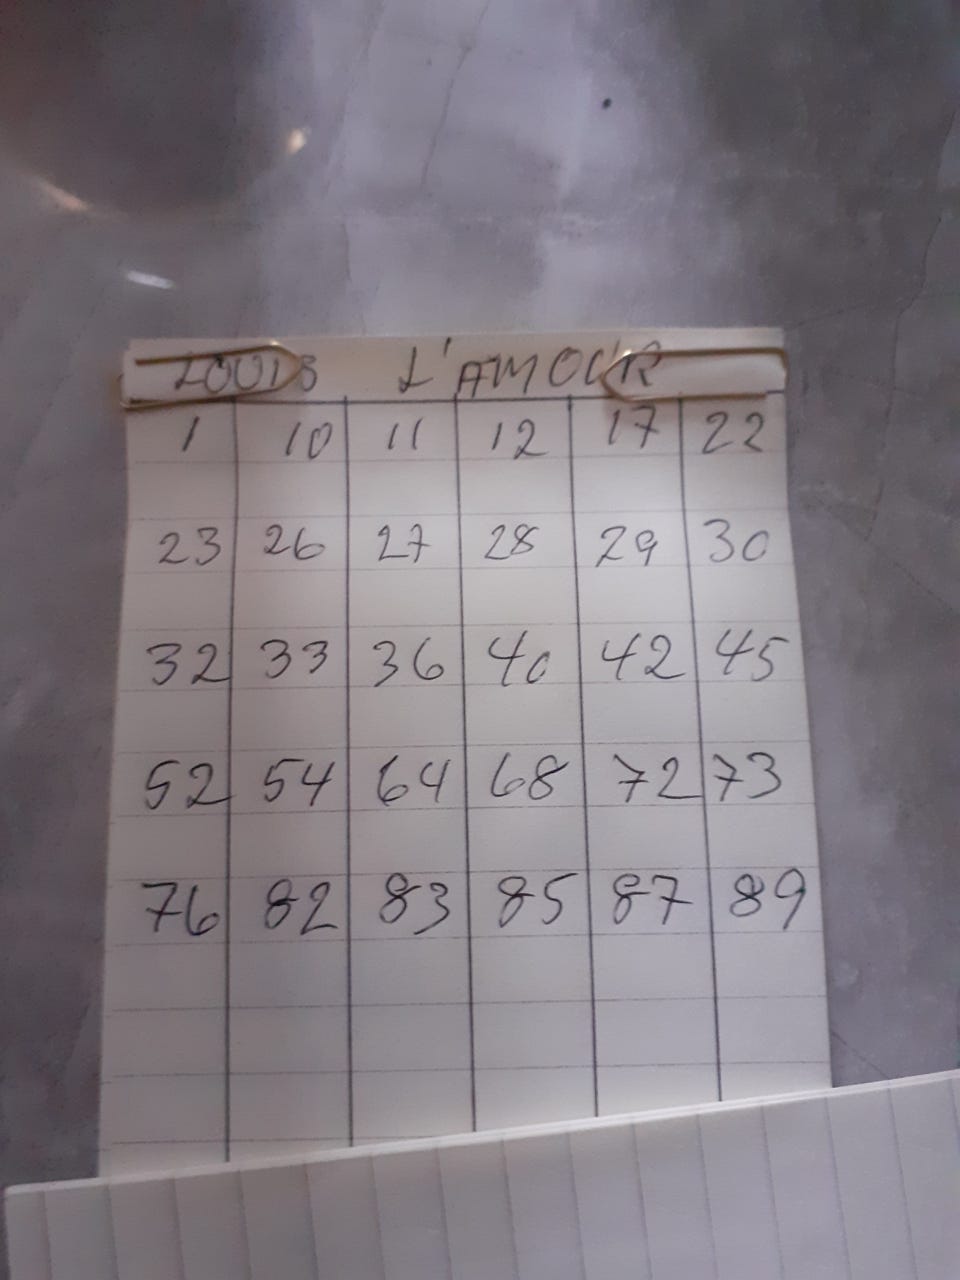 LOUIS L'AMOUR
1 10 11 12 17 22
23 26 27 28 29 30
32 33 36 40 42 45
52 54 64 68 72 73
76 82 83 85 87 89